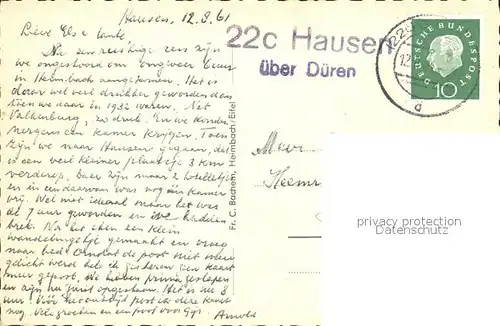 Hausen, 12.9.61
Lieve Els
Na een reis zijn
we ongestoord om
in Heimbach aangekomen. Het is
daar wel veel drukker geworden dan
toen we daar in 1932 waren. Net
Valkenburg, zo druk. En we konden
nergens een kamer krijgen. Toen
zijn we naar Hausen gegaan, dat
is een veel kleiner plaatsje 3 km
verderop. Daar zijn maar 2 hotelletjes
en in één daarvan was nog een kamer
vrij. Wel niet ideaal maar het was
al 7 uur geworden en we hadden
Na het eten een klein
wandelingetje gemaakt en vroeg
naar bed. Omdat de post niet meer
gelicht werd heb ik gisteren een kaart
meer gepost. We hebben prima geslapen
en zijn nu juist opgestaan. Het is nu 8
uur. Vóór post ik deze kaart
nog. Vele groeten en een poot voor
22c Hausen
über Düren
DEUTSCHE BUNDESPOST
10
d
Fr. C. Bachem, Heimbach/Eifel
privacy protection
Datenschutz